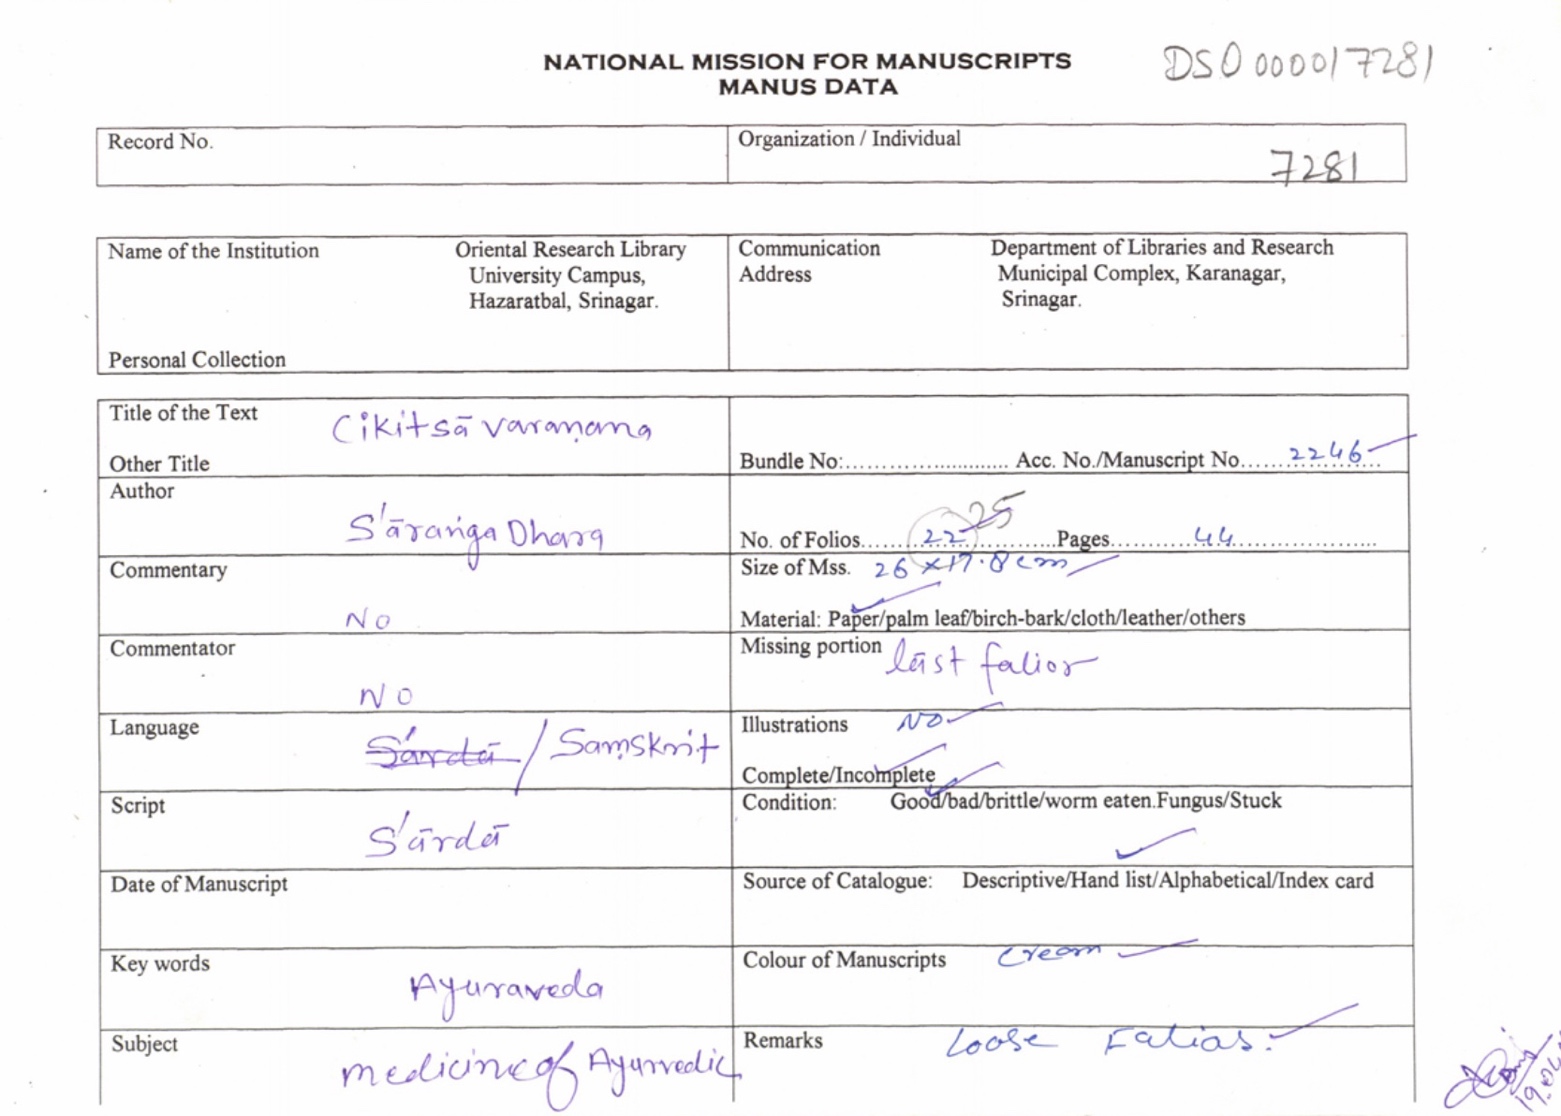 NATIONAL MISSION FOR MANUSCRIPTS
MANUS DATA
DSO 000017281
Record No.
Organization / Individual
7281
Name of the Institution Oriental Research Library
University Campus,
Hazaratbal, Srinagar.
Personal Collection
Communication Department of Libraries and Research
Address Municipal Complex, Karanagar,
Srinagar.
Title of the Text Cikitsā varaṇana
Other Title
Bundle No:........................... Acc. No./Manuscript No. 2246
Author
S'āraṅga Dhara
No. of Folios 22 25 Pages 44
Commentary
No
Size of Mss. 26 × 17.8 cm
Material: Paper/palm leaf/birch-bark/cloth/leather/others
Commentator
No
Missing portion last falior
Language S'ārdā / Saṃskrit
Illustrations No
Complete/Incomplete
Script
S'ārdā
Condition: Good/bad/brittle/worm eaten.Fungus/Stuck
Date of Manuscript
Source of Catalogue: Descriptive/Hand list/Alphabetical/Index card
Key words
Ayuraveda
Colour of Manuscripts cream
Subject
medicine of Ayurvedic
Remarks Loose Falias.